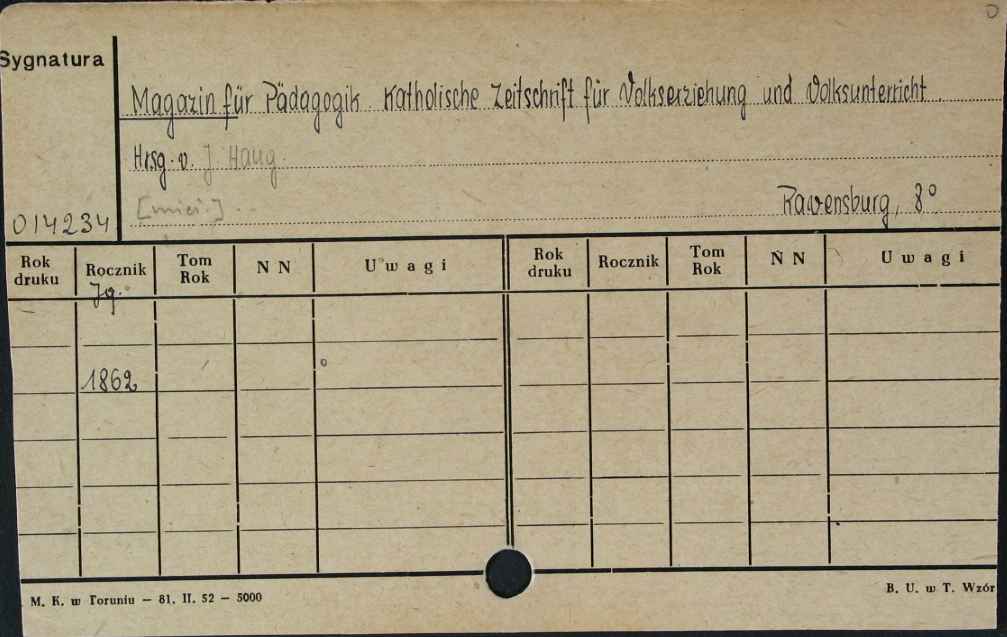 D
Sygnatura
Magazin für Pädagogik Katholische Zeitschrift für Volkserziehung und Volksunterricht.
Hrsg. v. J Haug.
014234
Ravensburg, 8°
Rok druku Rocznik Tom Rok N N Uwagi Rok druku Rocznik Tom Rok N N Uwagi
Jg.
1862
M. K. w Toruniu — 81. II. 52 — 5000
B. U. w T. Wzór